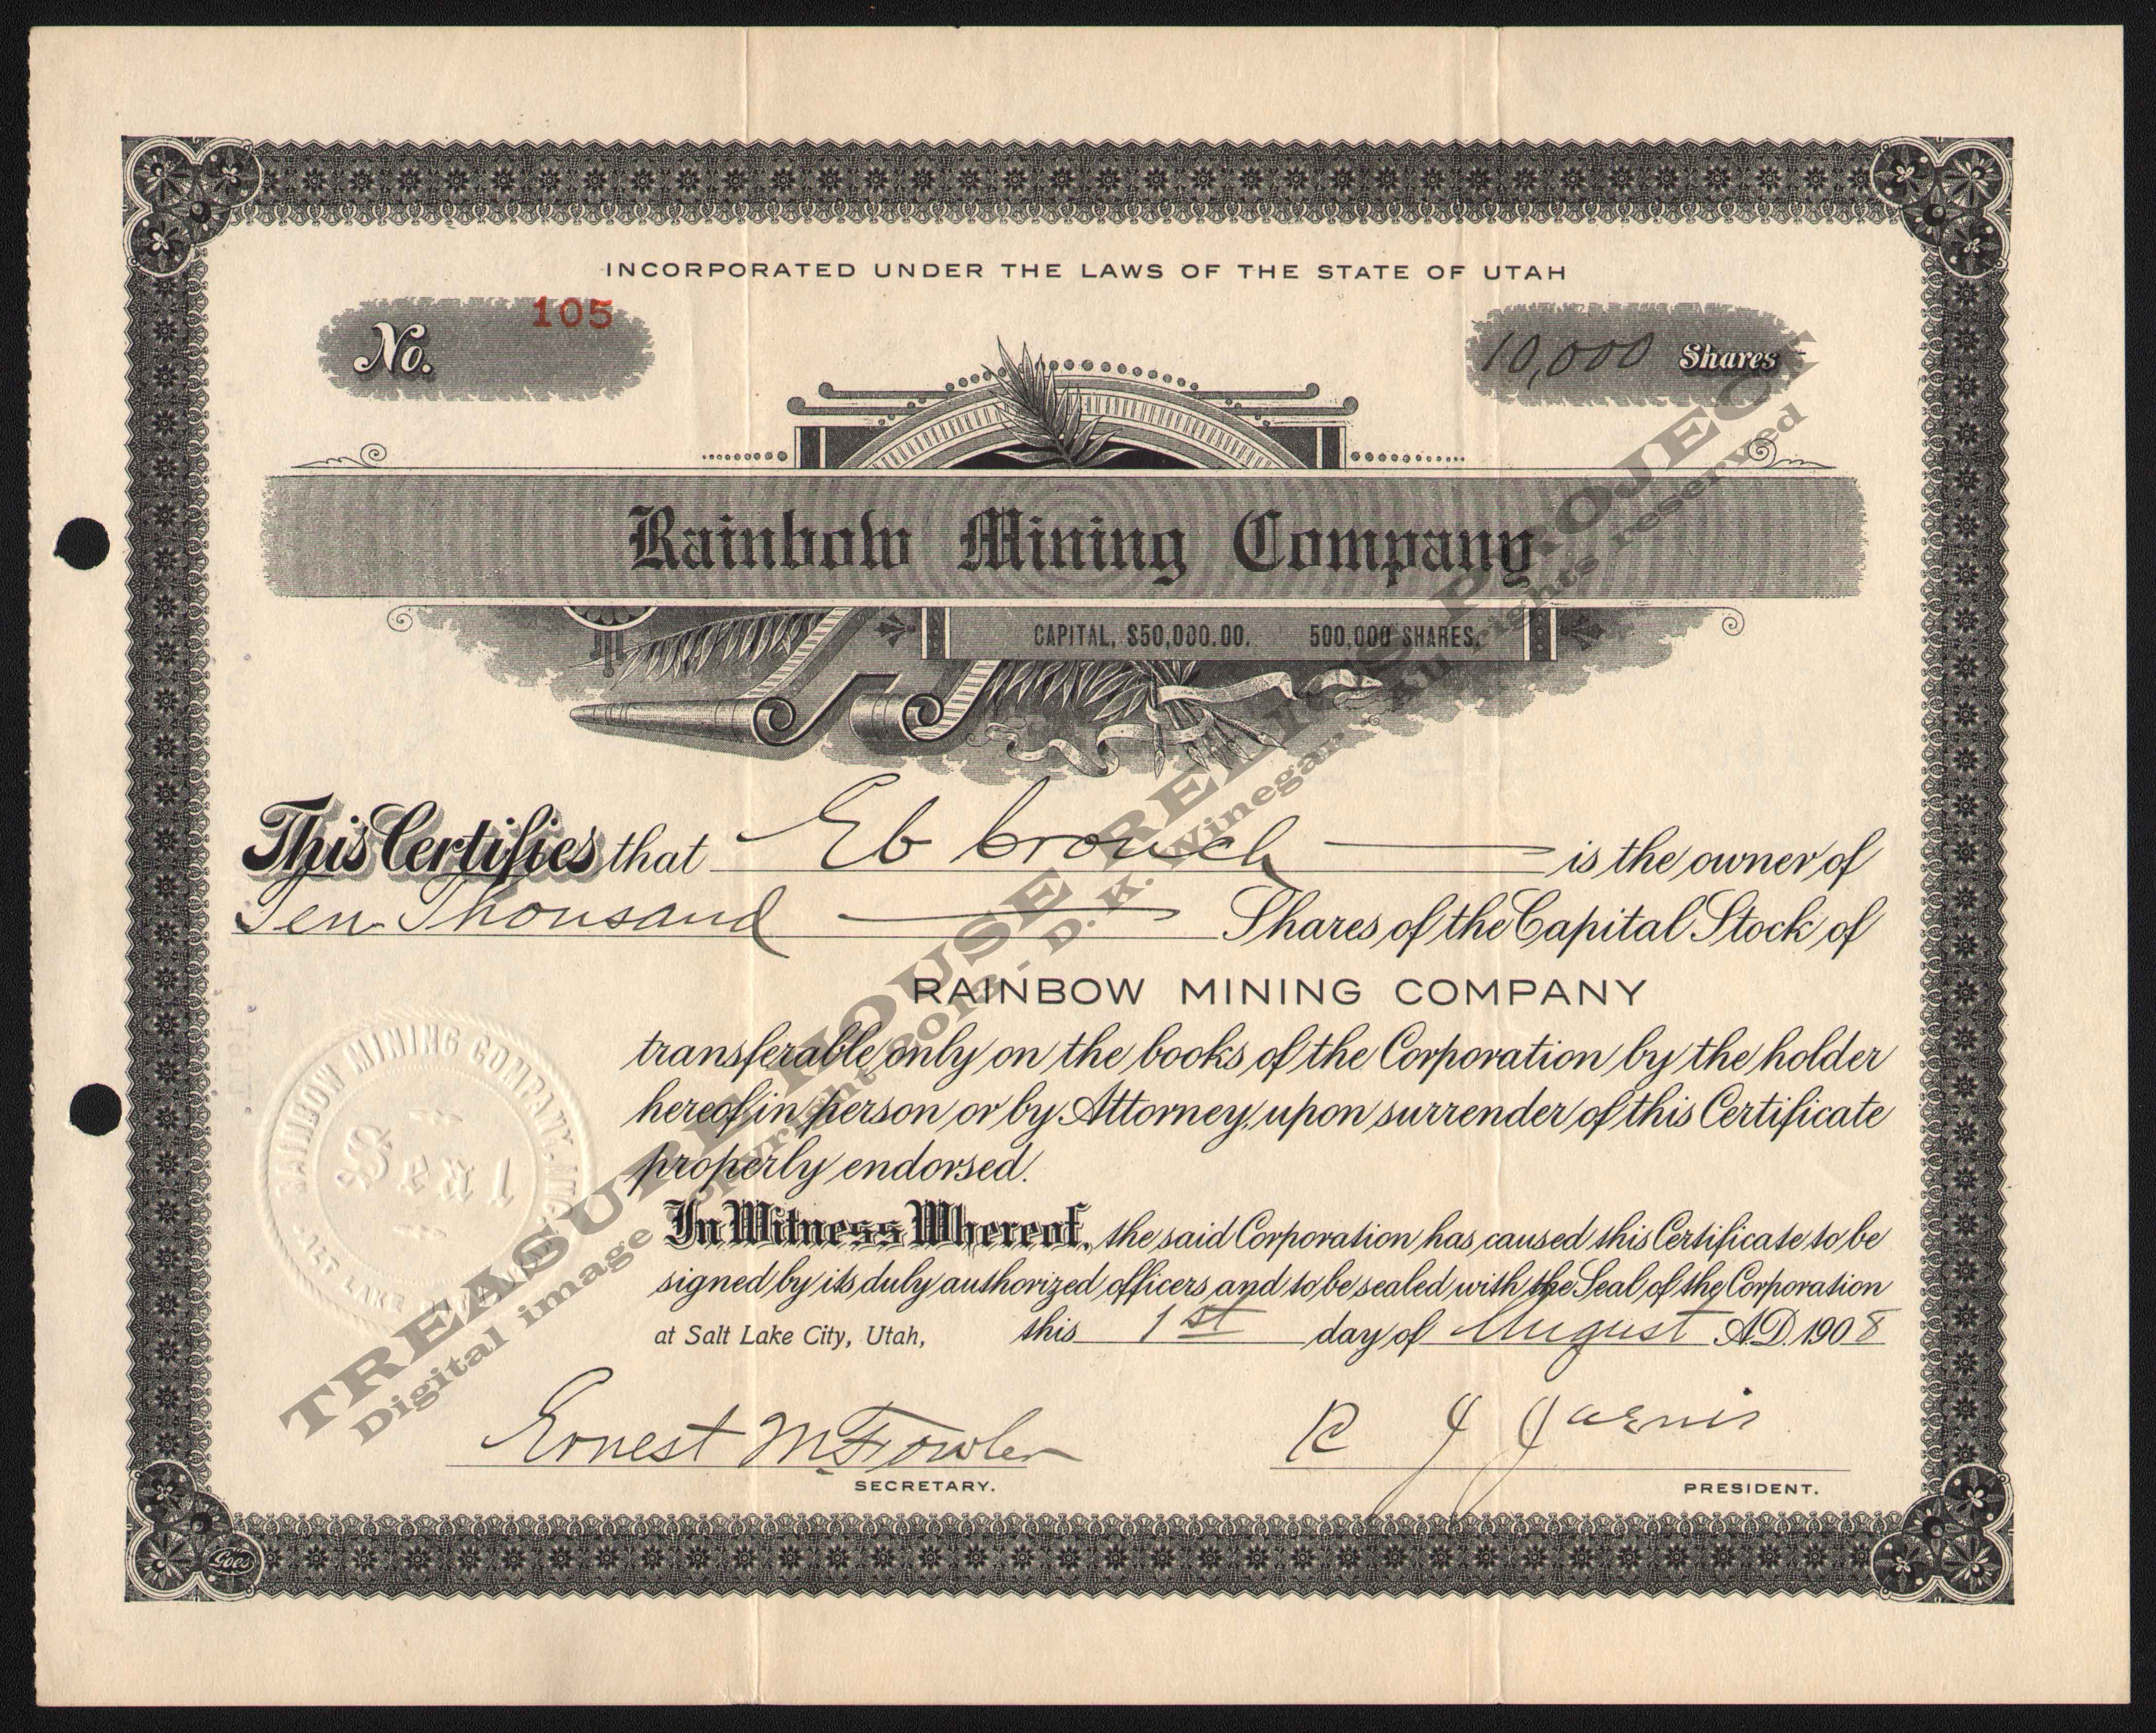 INCORPORATED UNDER THE LAWS OF THE STATE OF UTAH
No. 105
10,000 Shares
Rainbow Mining Company
CAPITAL, $50,000.00. 500,000 SHARES.
This Certifies that Eb Crouch is the owner of
Ten Thousand Shares of the Capital Stock of
RAINBOW MINING COMPANY
transferable only on the books of the Corporation by the holder
hereof in person or by Attorney, upon surrender of this Certificate
properly endorsed.
In Witness Whereof, the said Corporation has caused this Certificate to be
signed by its duly authorized officers and to be sealed with the Seal of the Corporation
at Salt Lake City, Utah, this 1st day of August A.D. 1908
RAINBOW MINING COMPANY
Seal
SALT LAKE
Ernest M. Fowler
SECRETARY.
R J Jarvis
PRESIDENT.
Goes
TREASURE HOUSE RELICS PROJECT
Digital image copyright - D. K. Winegar All rights reserved